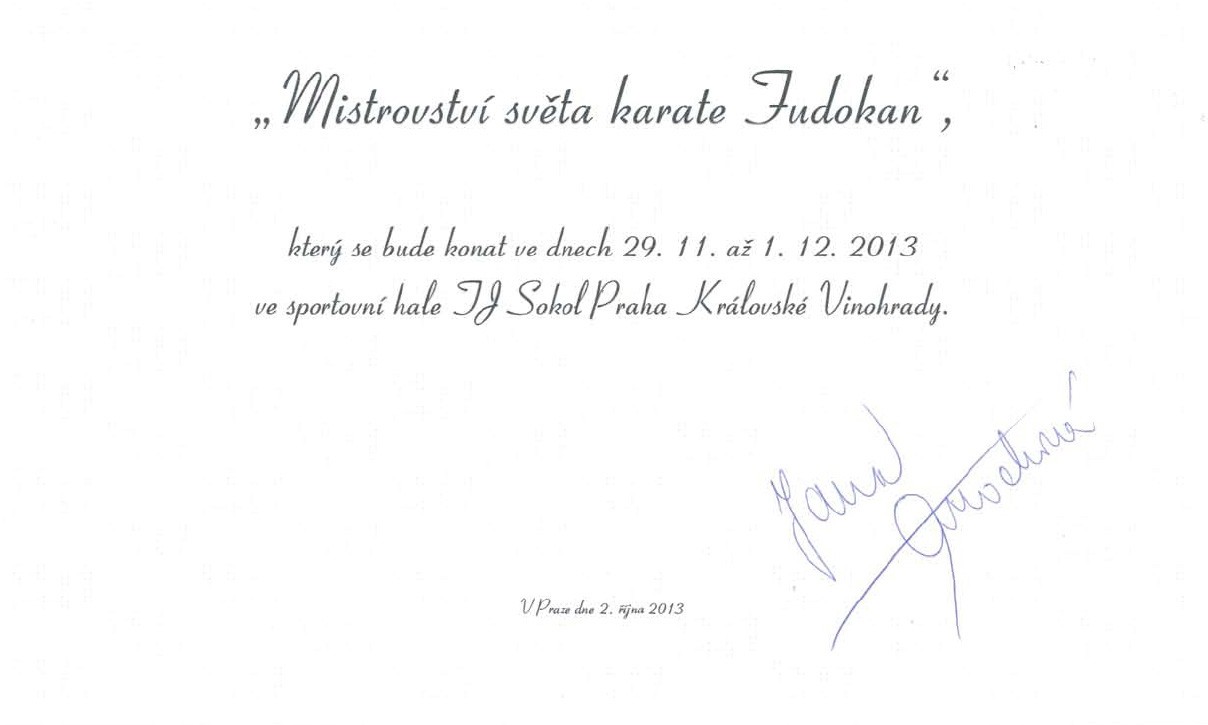 „Mistrovství světa karate Fudokan“,
který se bude konat ve dnech 29. 11. až 1. 12. 2013
ve sportovní hale TJ Sokol Praha Královské Vinohrady.
Jana
V Praze dne 2. října 2013